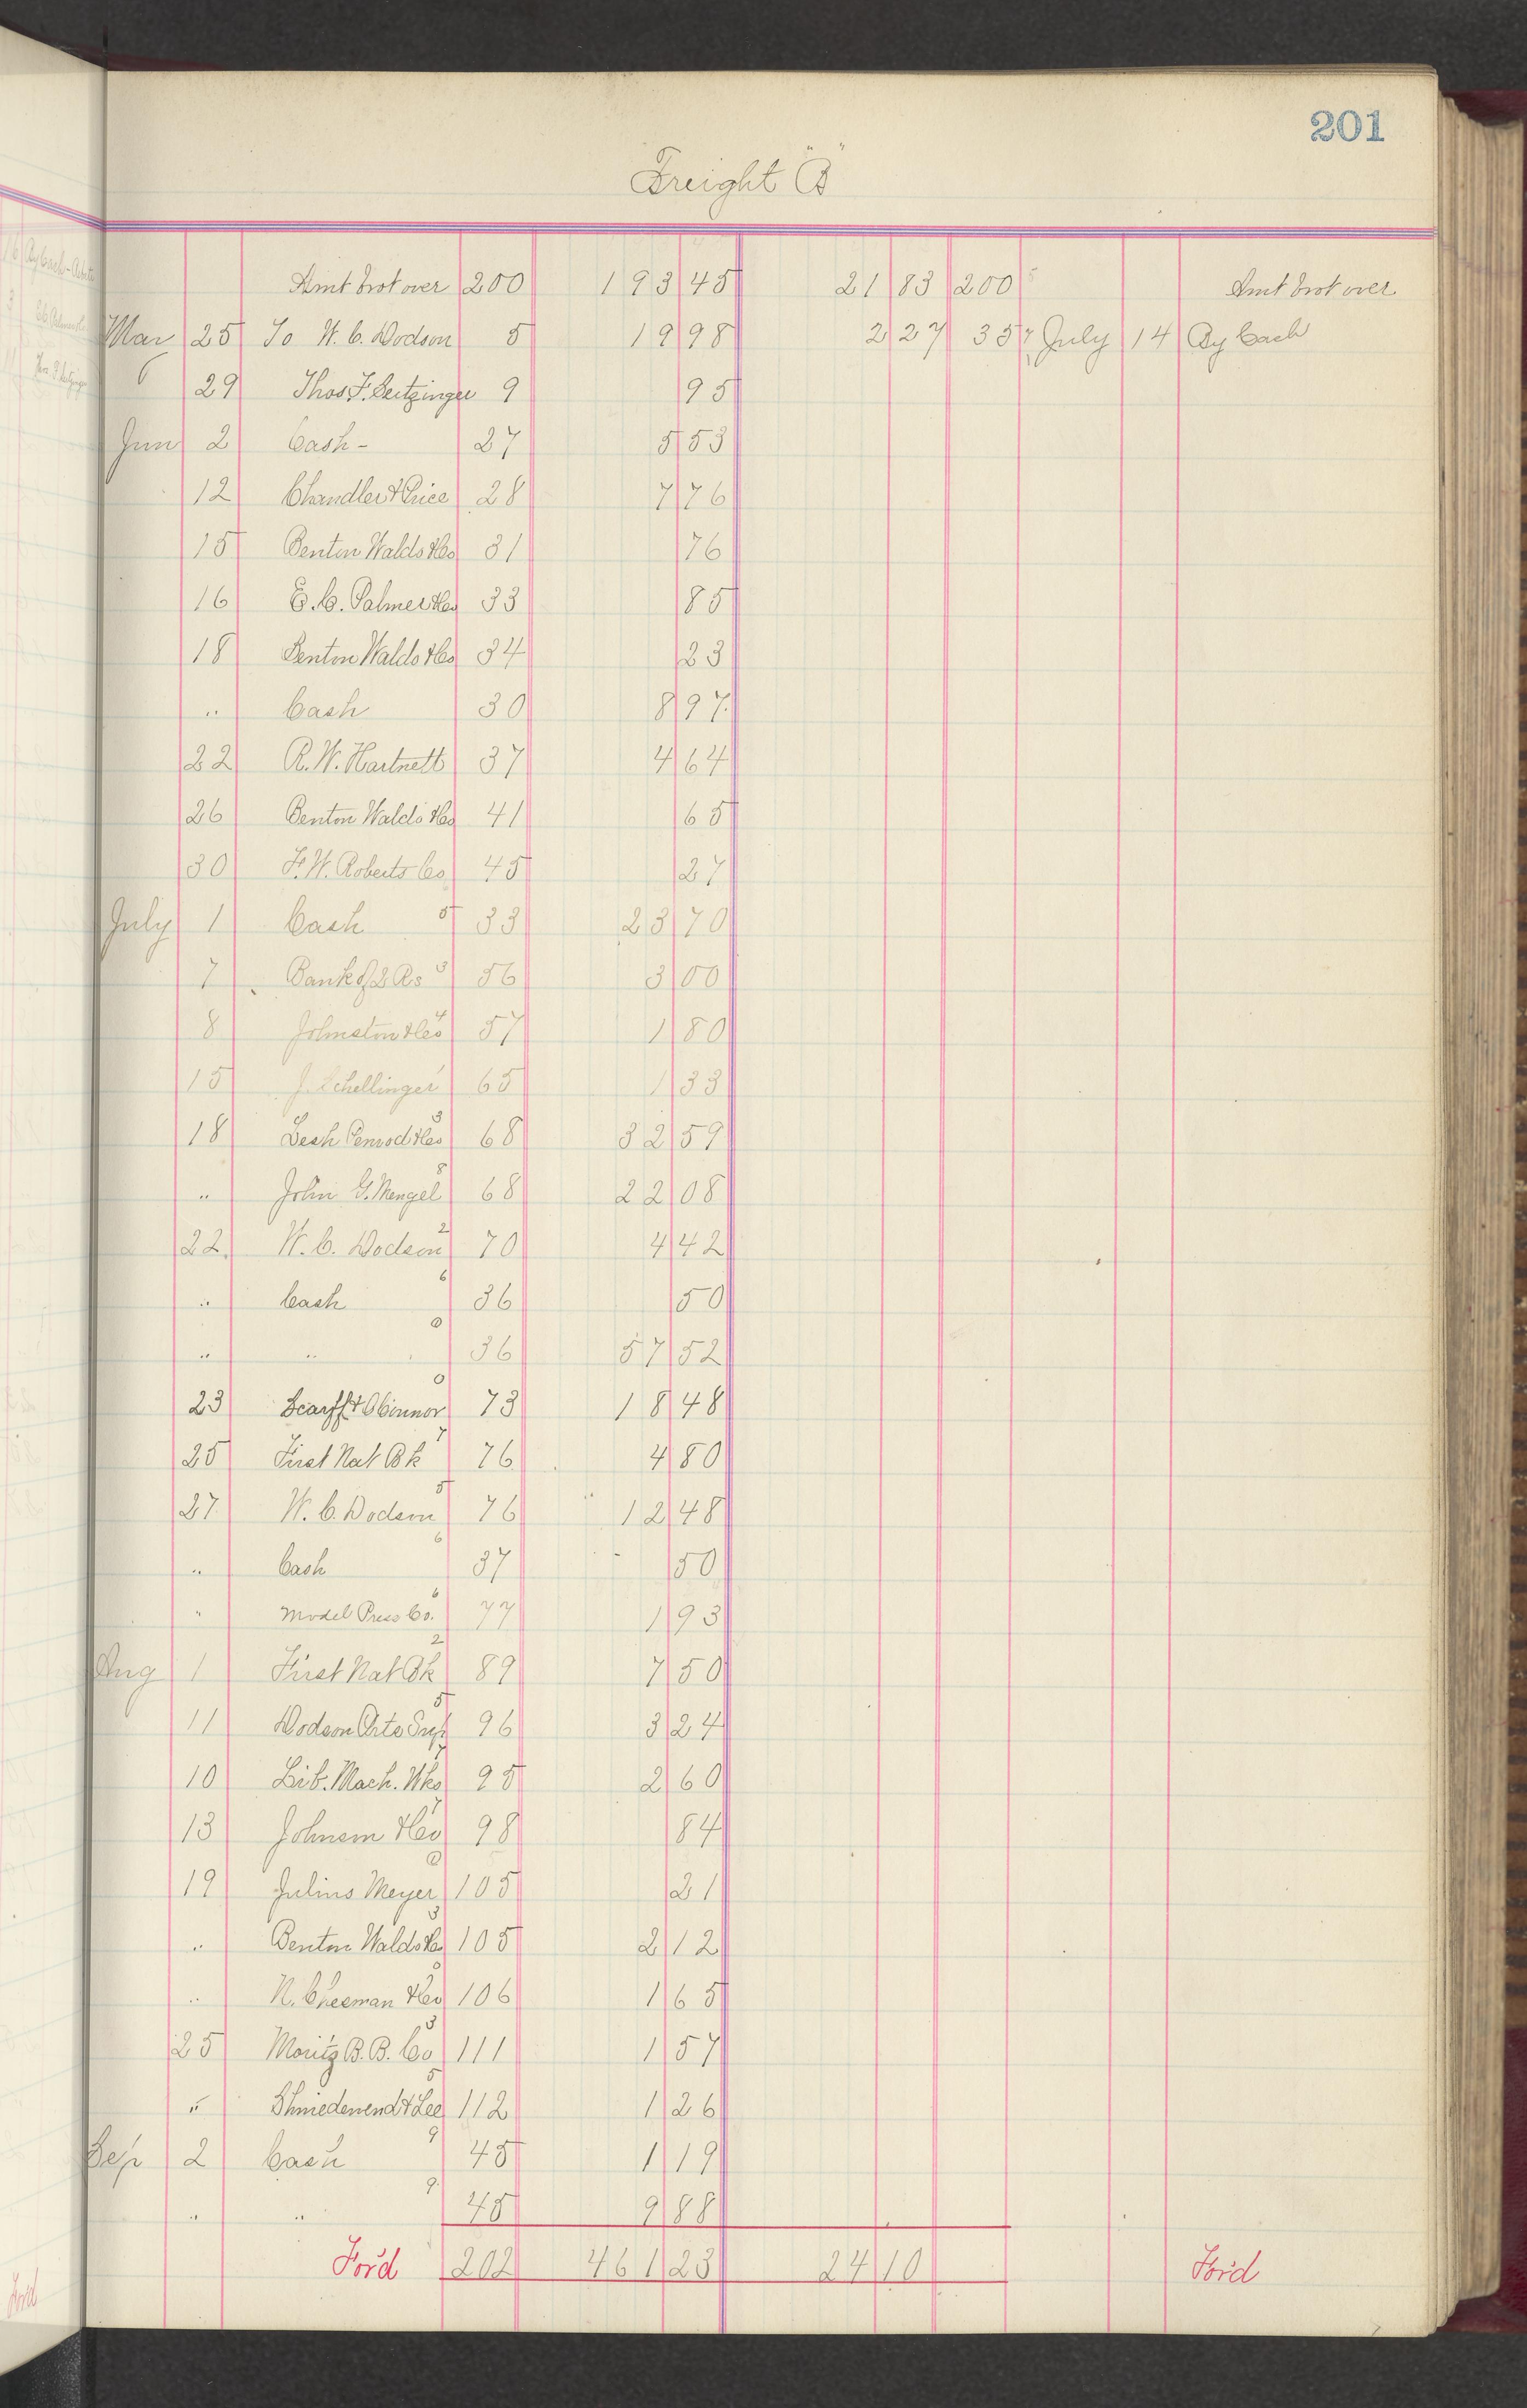 201
Freight "B"
Amt brot over 200 193 45 21 83 200 Amt brot over
Mar 25 To W. C. Dodson 5 19 98 2 27 35 7 July 14 By Cash
6 29 Thos. F. Seitzinger 9 95
Jun 2 Cash - 27 5 53
12 Chandler & Price 28 7 76
15 Benton Waldo & Co 31 76
16 E. C. Palmer & Co 33 85
18 Benton Waldo & Co 34 23
" Cash 30 8 97
22 R. W. Hartnett 37 4 64
26 Benton Waldo & Co 41 65
30 F. W. Roberts Co 45 27
July 1 Cash 5 33 23 70
7 Bank of 2 Rs 3 56 3 00
8 Johnston & Co 4 57 1 80
15 J. Schellinger 65 1 33
18 Lesh Penrod & Co 3 68 32 59
" John G. Mengel 8 68 22 08
22 W. C. Dodson 2 70 4 42
" Cash 6 36 50
" " 0 36 57 52
23 Scarff & OConnor 0 73 18 48
25 First Nat Bk 7 76 4 80
27 W. C. Dodson 5 76 12 48
" Cash 6 37 50
" Model Press Co. 6 77 1 93
Aug 1 First Nat Bk 2 89 7 50
11 Dodson Ptrs Sup 5 96 3 24
10 Lib. Mach. Wks 7 95 2 60
13 Johnson & Co 7 98 84
19 Julius Meyer 0 105 21
" Benton Waldo & Co 3 105 2 12
" N. Cheeman & Co 106 1 65
25 Moritz B. B. Co 3 111 1 57
" Shniedewend & Lee 5 112 1 26
Sep 2 Cash 9 45 1 19
" " 9 45 9 88
For'd 202 461 23 24 10 For'd
For'd